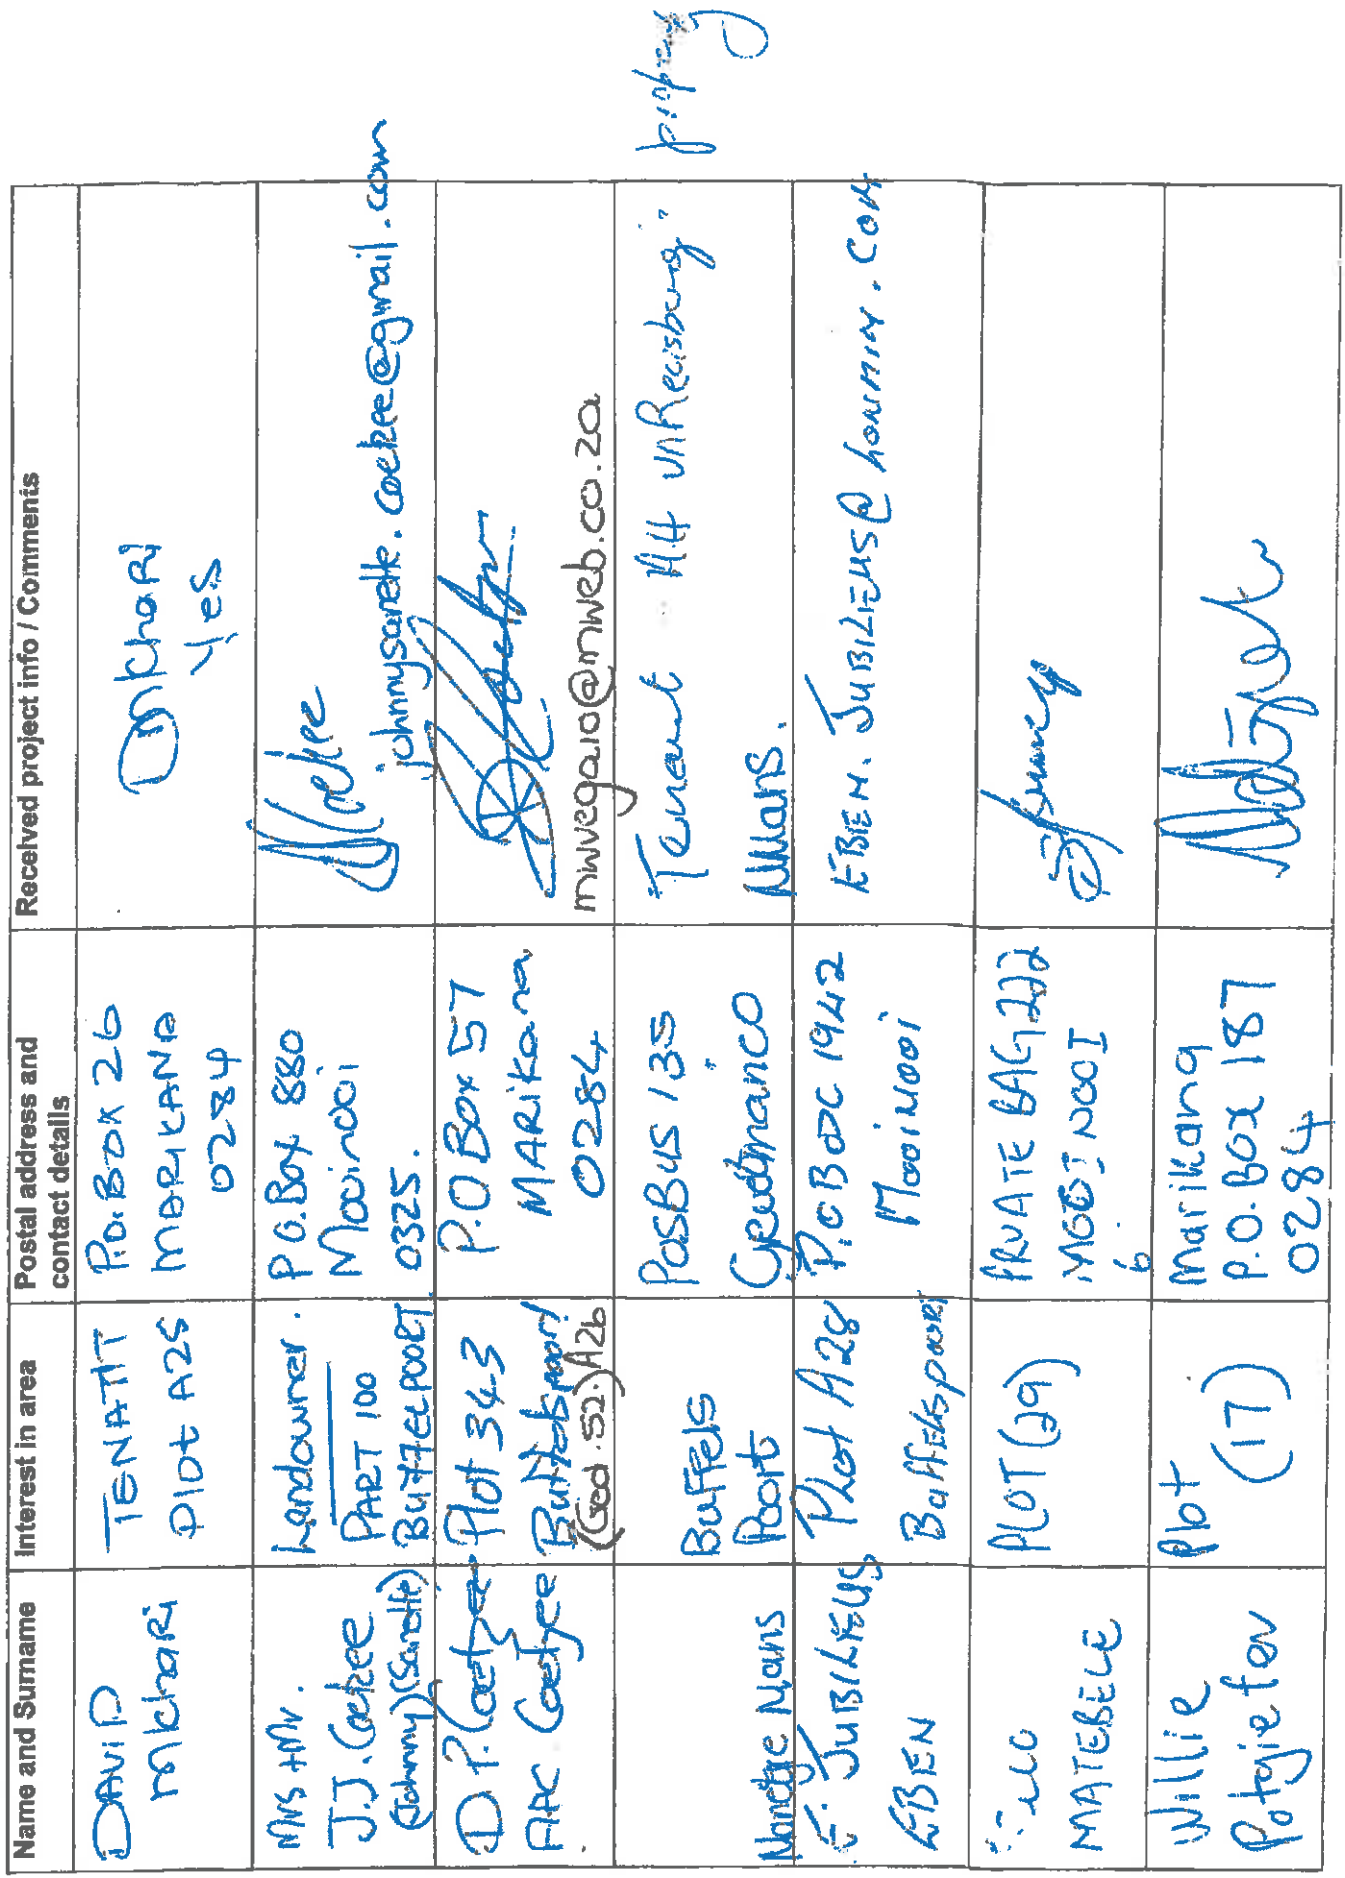 Name and Surname
Interest in area
Postal address and
contact details
Received project info / Comments
DAVID
Mkhari
TENATT
Plot A25
P.O. BOX 26
MARIKANA
0284
Dmkhari
Yes
Mrs + Mr.
J.J. Coekee
(Johnny)(Sanette)
Landowner.
PART 100
BUFFELPOORT
P O. Box 880
Mooinooi
0325.
johnnysanette.coekee@gmail.com
D P. Coetzee
AAC Coetzee
Plot 343
Buffelspoort
(Ged. 52.) A26
P.O Box 57
MARikana
0284
mwvega10@mweb.co.za
Nandje Nans
Buffels
Poort
PosBus 135
Tenant
property
Mans.
E. JUBILIEUS
EBEN
Plot A28
Buffelspoort
P.O BOX 1942
Mooinooi
EBEN. JUBILIEUS@
MATEBELE
PLOT (29)
PRIVATE BAG 222
MOOINOOI
6
Willie
Potgieter
Plot
(17)
Marikana
P.O. Box 187
0284